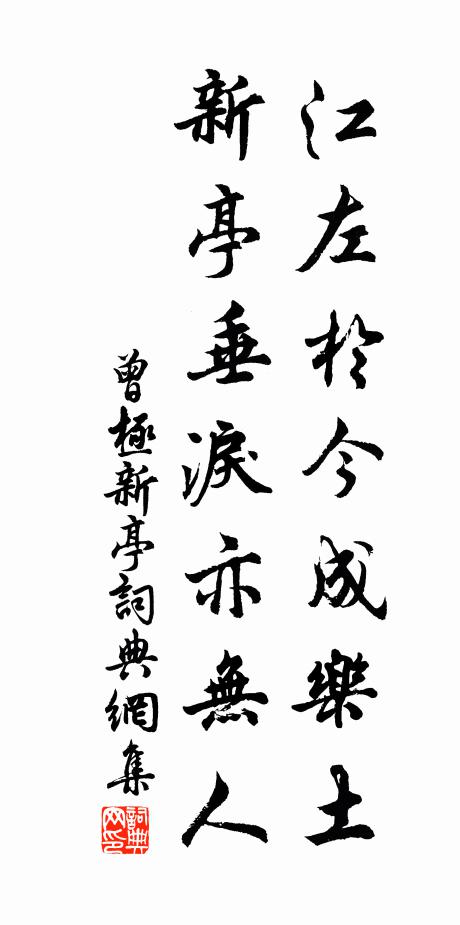 江左於今成樂土
新亭垂淚亦無人
曾極新亭詞典網集
詞典網印